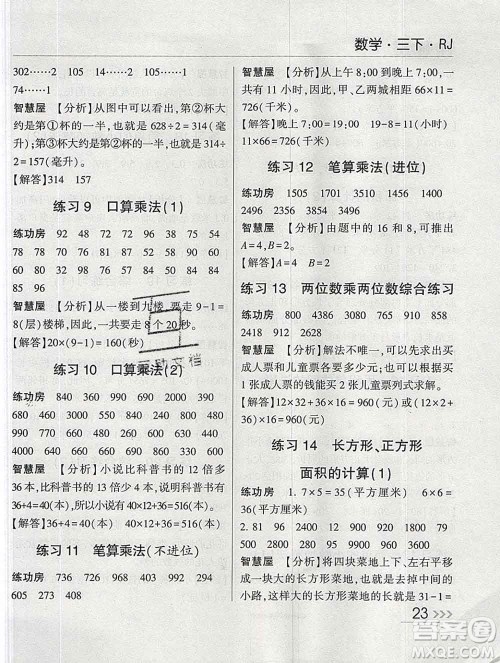 数学·三下·RJ
302……2 105……1 214……2 105……1
74……1
智慧屋 【分析】从图中可以看出,第②杯大
约是第①杯的一半,就是628÷2=314(毫升)。
第③杯大约是第②杯的一半,也就是314÷
2=157(毫升)。
【解答】314 157
练习9 口算乘法(1)
练功房 92 48 72 72 96 39 38
90 75 90 76 81 78 54 52 90
60 80 32 78 68 51 84 58 84
85 96
智慧屋 【分析】从一楼到九楼,要走9-1=
8(层)楼梯,一共要走8个20秒。
【解答】20×(9-1)=160(秒)
练习10 口算乘法(2)
练功房 840 390 440 660 390
680 460 300 880 990 2000
4000 6000 2100 3200 900
智慧屋 【分析】小说比科普书的12倍多
36本,也就是科普书的12倍是516-
36=480(本)。
【解答】36+4=40(本) 40×12+36=516(本)
36+4=40(本)
练习11 笔算乘法(不进位)
练功房 736 726 968 484 372
605 273 408
智慧屋 【分析】从上午8:00到晚上7:00,一
共有11小时,因此,甲、乙两城相距66×11=
726(千米)。
【解答】晚上7:00=19:00 19-8=11(小时)
11×66=726(千米)
练习12 笔算乘法(进位)
练功房 1505 1701 3510 4505 1400
2496 2356 3886 1564 3894
智慧屋 【分析】由题中的16和8,可推出
A=4,B=2。
【解答】A=4 B=2
练习13 两位数乘两位数综合练习
练功房 6200 580 768 2400 900
2924 1288 1863
智慧屋 【分析】解法不唯一,可以先求出购
买成人票和儿童票各要多少元;也可以根据
购买1张成人票的钱能买2张儿童票列式求解。
【解答】12×32+24×16=768(元)
(12×2+24)×16=768(元)
练习14 长方形、正方形
面积的计算(1)
练功房 1.7×5=35(平方厘米) 6×6=
36(平方厘米)
2.81 96 288
智慧屋 【分析】将四块菜地上下、左右平移
成一块大的长方形菜地,也就是去掉中间的
小路,这样大的长方形菜地的长是31-1=
23